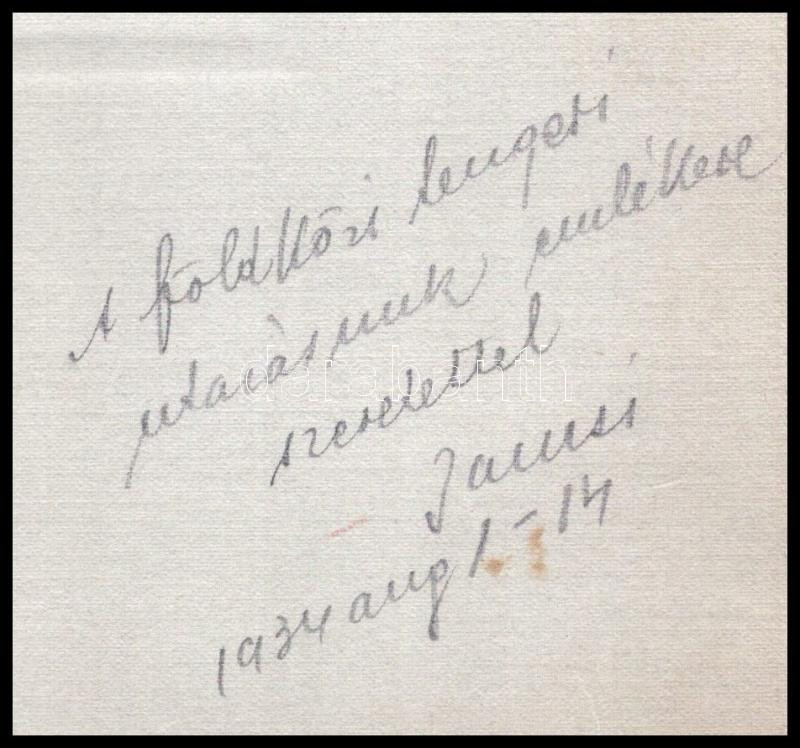 A földközi tengeri
utazásunk emlékere
szeretettel
Jancsi
1934 aug 1-14
darabanth